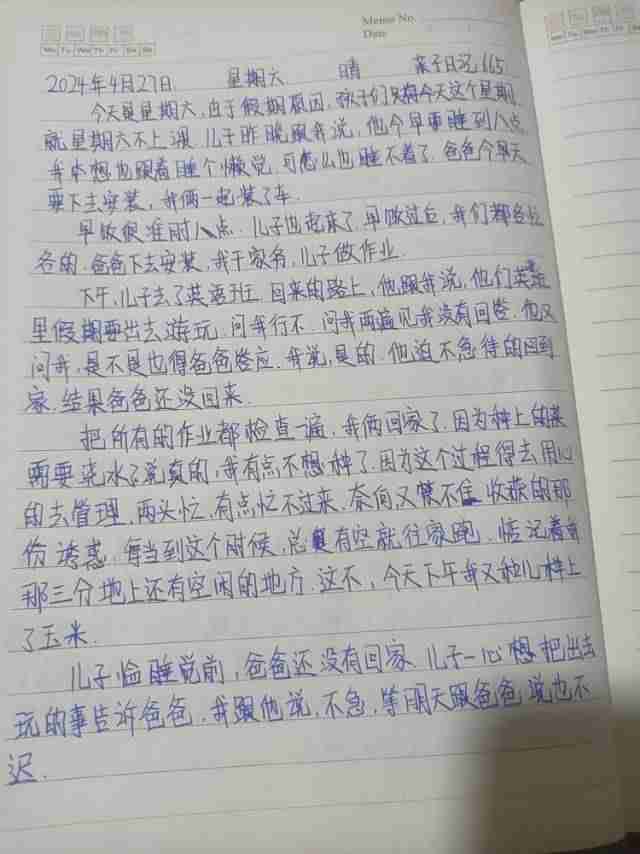 Memo No.
Date
Mo Tu We Th Fr Sa Su
2024年4月27日 星期六 晴 亲子日记 165
今天是星期六,由于假期原因,孩子们只有今天这个星期
就星期六不上课.儿子昨晚跟我说,他今早要睡到八点
我本想也跟着睡个懒觉,可怎么也睡不着了.爸爸今早天
要下去安装,我俩一起装了车.
早饭很准时八点.儿子也起来了.早饭过后,我们都各忙
各的.爸爸下去安装,我干家务,儿子做作业.
下午,儿子去了英语班.回来的路上,他跟我说,他们英语
里假期要出去游玩.问我行不.问我两遍见我没有回答.他又
问我,是不是也得爸爸答应.我说,是的.他迫不急待的回到
家.结果爸爸还没回来.
把所有的作业都检查一遍.我俩回家了.因为种上的菜
需要浇水了.说真的,我有点不想种了.因为这个过程得去用心
的去管理.两头忙,有点忙不过来.奈何又禁不住收获的那
份诱惑.每当到这个时候,总有空就往家跑.惦记着
那三分地上还有空闲的地方.这不,今天下午我又种几样上
了玉米.
儿子临睡觉前,爸爸还没有回家.儿子一心想把出去
玩的事告诉爸爸.我跟他说,不急.等明天跟爸爸说也不
迟.